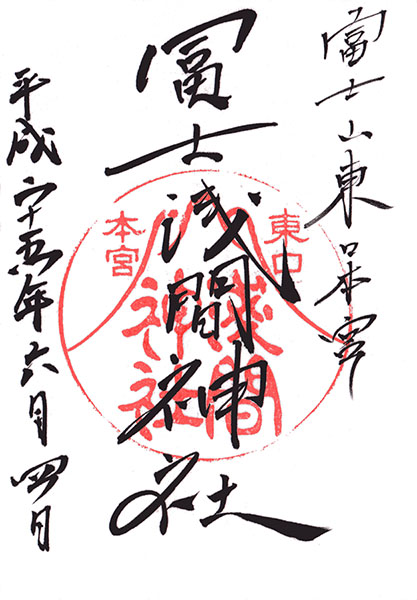 富士山東口本宮
冨士浅間神社
平成二十五年六月四日
東口
本宮
間
神社